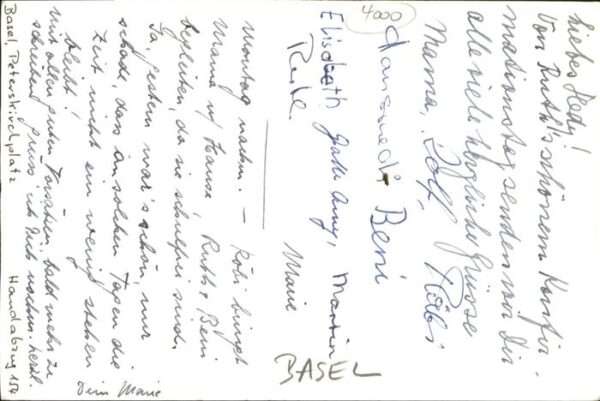 4000
Liebes Hedy!
Von Ruth's schönem Konfir-
mationstag senden wir Dir
alle viele herzliche Grüsse
Mama, Rolf, Röbi
Hansruedi Beni
Elisabeth Martin
Ruth. Marie
Montag nachm. – Röbi bringt
Mama n/ Hause, Ruth & Beni
begleiten, da sie schulfrei sind.
Ja, gestern war's schön, nur
schade, dass an solchen Tagen die
Zeit nicht ein wenig stehen
bleibt!
Mit allen guten Wünschen, bald mehr zu
schreiben grüss ich Dich nochm. herzl.
Dein Marie
BASEL
Basel, Peterskirchplatz
Handabzug 154